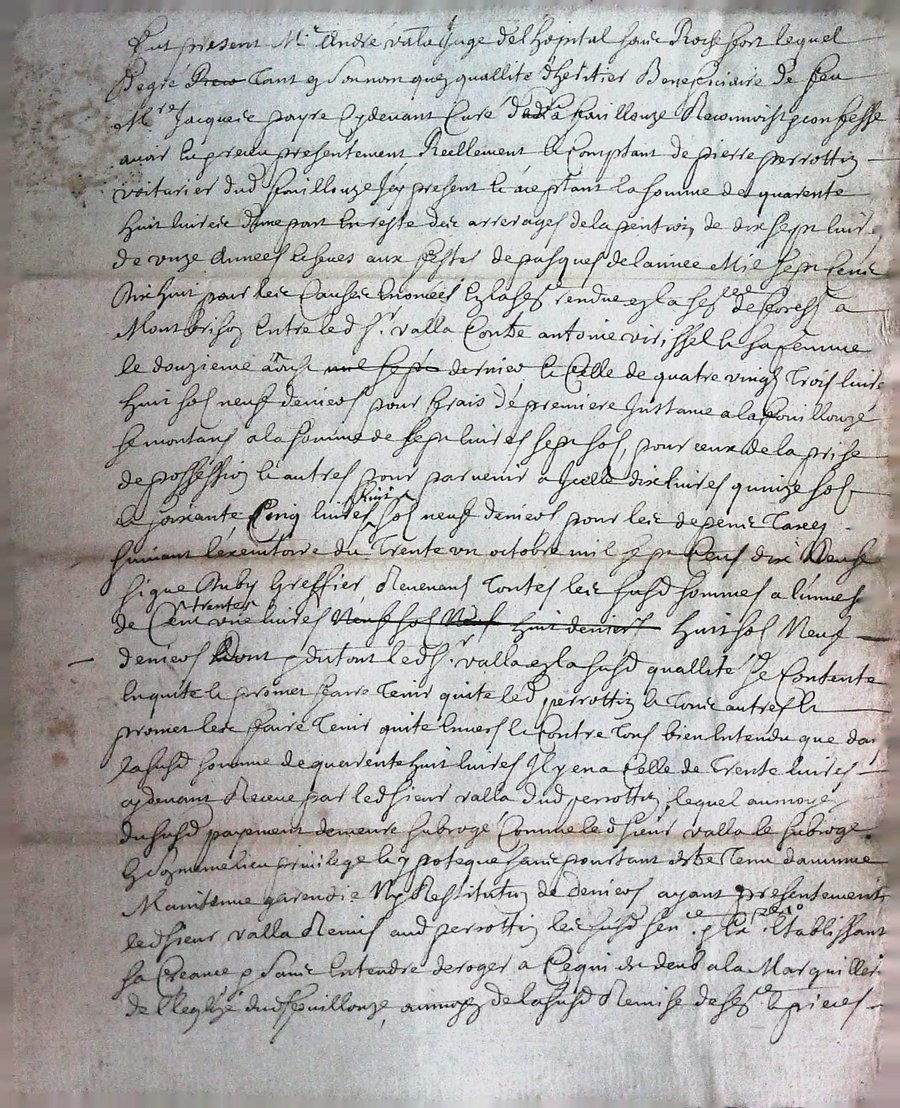 fut present Mr André valla Juge de l hopital sous Rochefort lequel
de gré tant en son nom que qualité d'heritier Beneficiaire de feu
Mres Jacques payre Cy devant Curé d la fouillouze Reconnoist confesse
avoir Eu presentement Réellement et Comptant de pierre perrottin
voiturier dud fouillouze Icy present et aceptant la somme de quarente
huit livres d'une part En reste des arrerages de la pention de dix sept livres
de onze Années Echeues aux festes de pasques de l année Mil sept Cens
dix huit pour les Causes Enoncées En la sence rendue en la de forest a
Montbrison Entre led sr valla Contre antoine virissel et sa femme
le douzieme mil sept dernier et Celle de quatre vingt Trois livres
huit sols neuf deniers pour frais de premiere Instance a la fouillouze
se montant a la somme de sept livres sept sols, pour ceux de la prise
de possession et autres pour parvenir a Icelle dix livres quinze sols
et soixante Cinq livres huit sols neuf deniers pour les depens Taxés
suivant l'executoire du Trente un octobre mil sept Cens dix Neuf
signé Greffier, Revenant Toutes les susd sommes a l'unne
de Cent trente une livres Neuf sols Neuf huit deniers huit sols Neuf
deniers Dont du tout led sr. valla en la susd qualité se Contente
En quite et promet faire Tenir quite led perrottin et Tous autres et
promet les faire Tenir quite Envers et Contre Tous bien Entendu que dans
la susd somme de quarente huit livres Il y en a Celle de Trente livres
cy devant Receue par led sieur valla dud perrottin, lequel au moyen
du susd payement demeure subrogé Comme led sieur valla le subroge
En son meme lieu privilege et ypoteque sans pourtant Estre Tenu d aucune
Maintenue garendie Ny Restitution de deniers ayant presentement
led sieur valla Remis aud perrottin les susd Etablissant
sa Creance sans Entendre deroger a Ce qui Est deub a la Marguillerie
de l'eglize dud fouillouze, au moyen de la susd Remise de et pieces